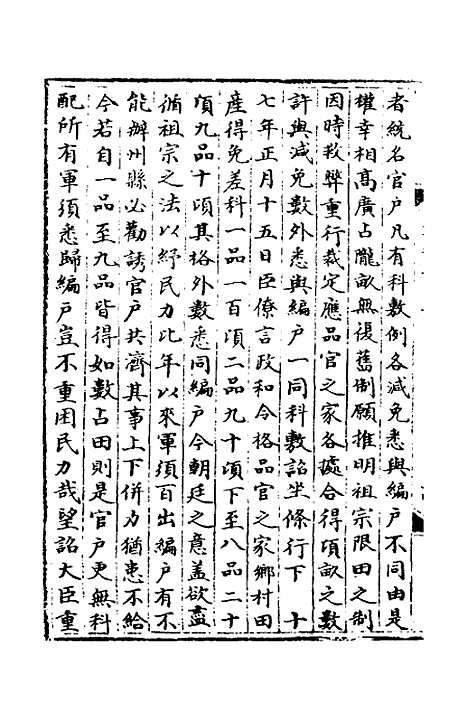 者統名官户凡有科敷例各減免悉與編户不同由是
權幸相髙廣占隴畝無復舊制願推明祖宗限田之制
因時救弊重行裁定應品官之家各據合得項畝之數
許與減免數外悉與編户一同科敷詔坐條行下　十
七年正月十五日臣僚言政和令格品官之家鄉村田
産得免差科一品一百頃二品九十頃下至八品二十
頃九品十頃其格外數悉同編户今朝廷之意蓋欲盡
循祖宗之法以紓民力比年以來軍須百出編户有不
能辦州縣必勸誘官户共濟其事上下併力猶患不給
今若自一品至九品皆得如數占田則是官户更無科
配所有軍須悉歸編户豈不重困民力哉望詔大臣重